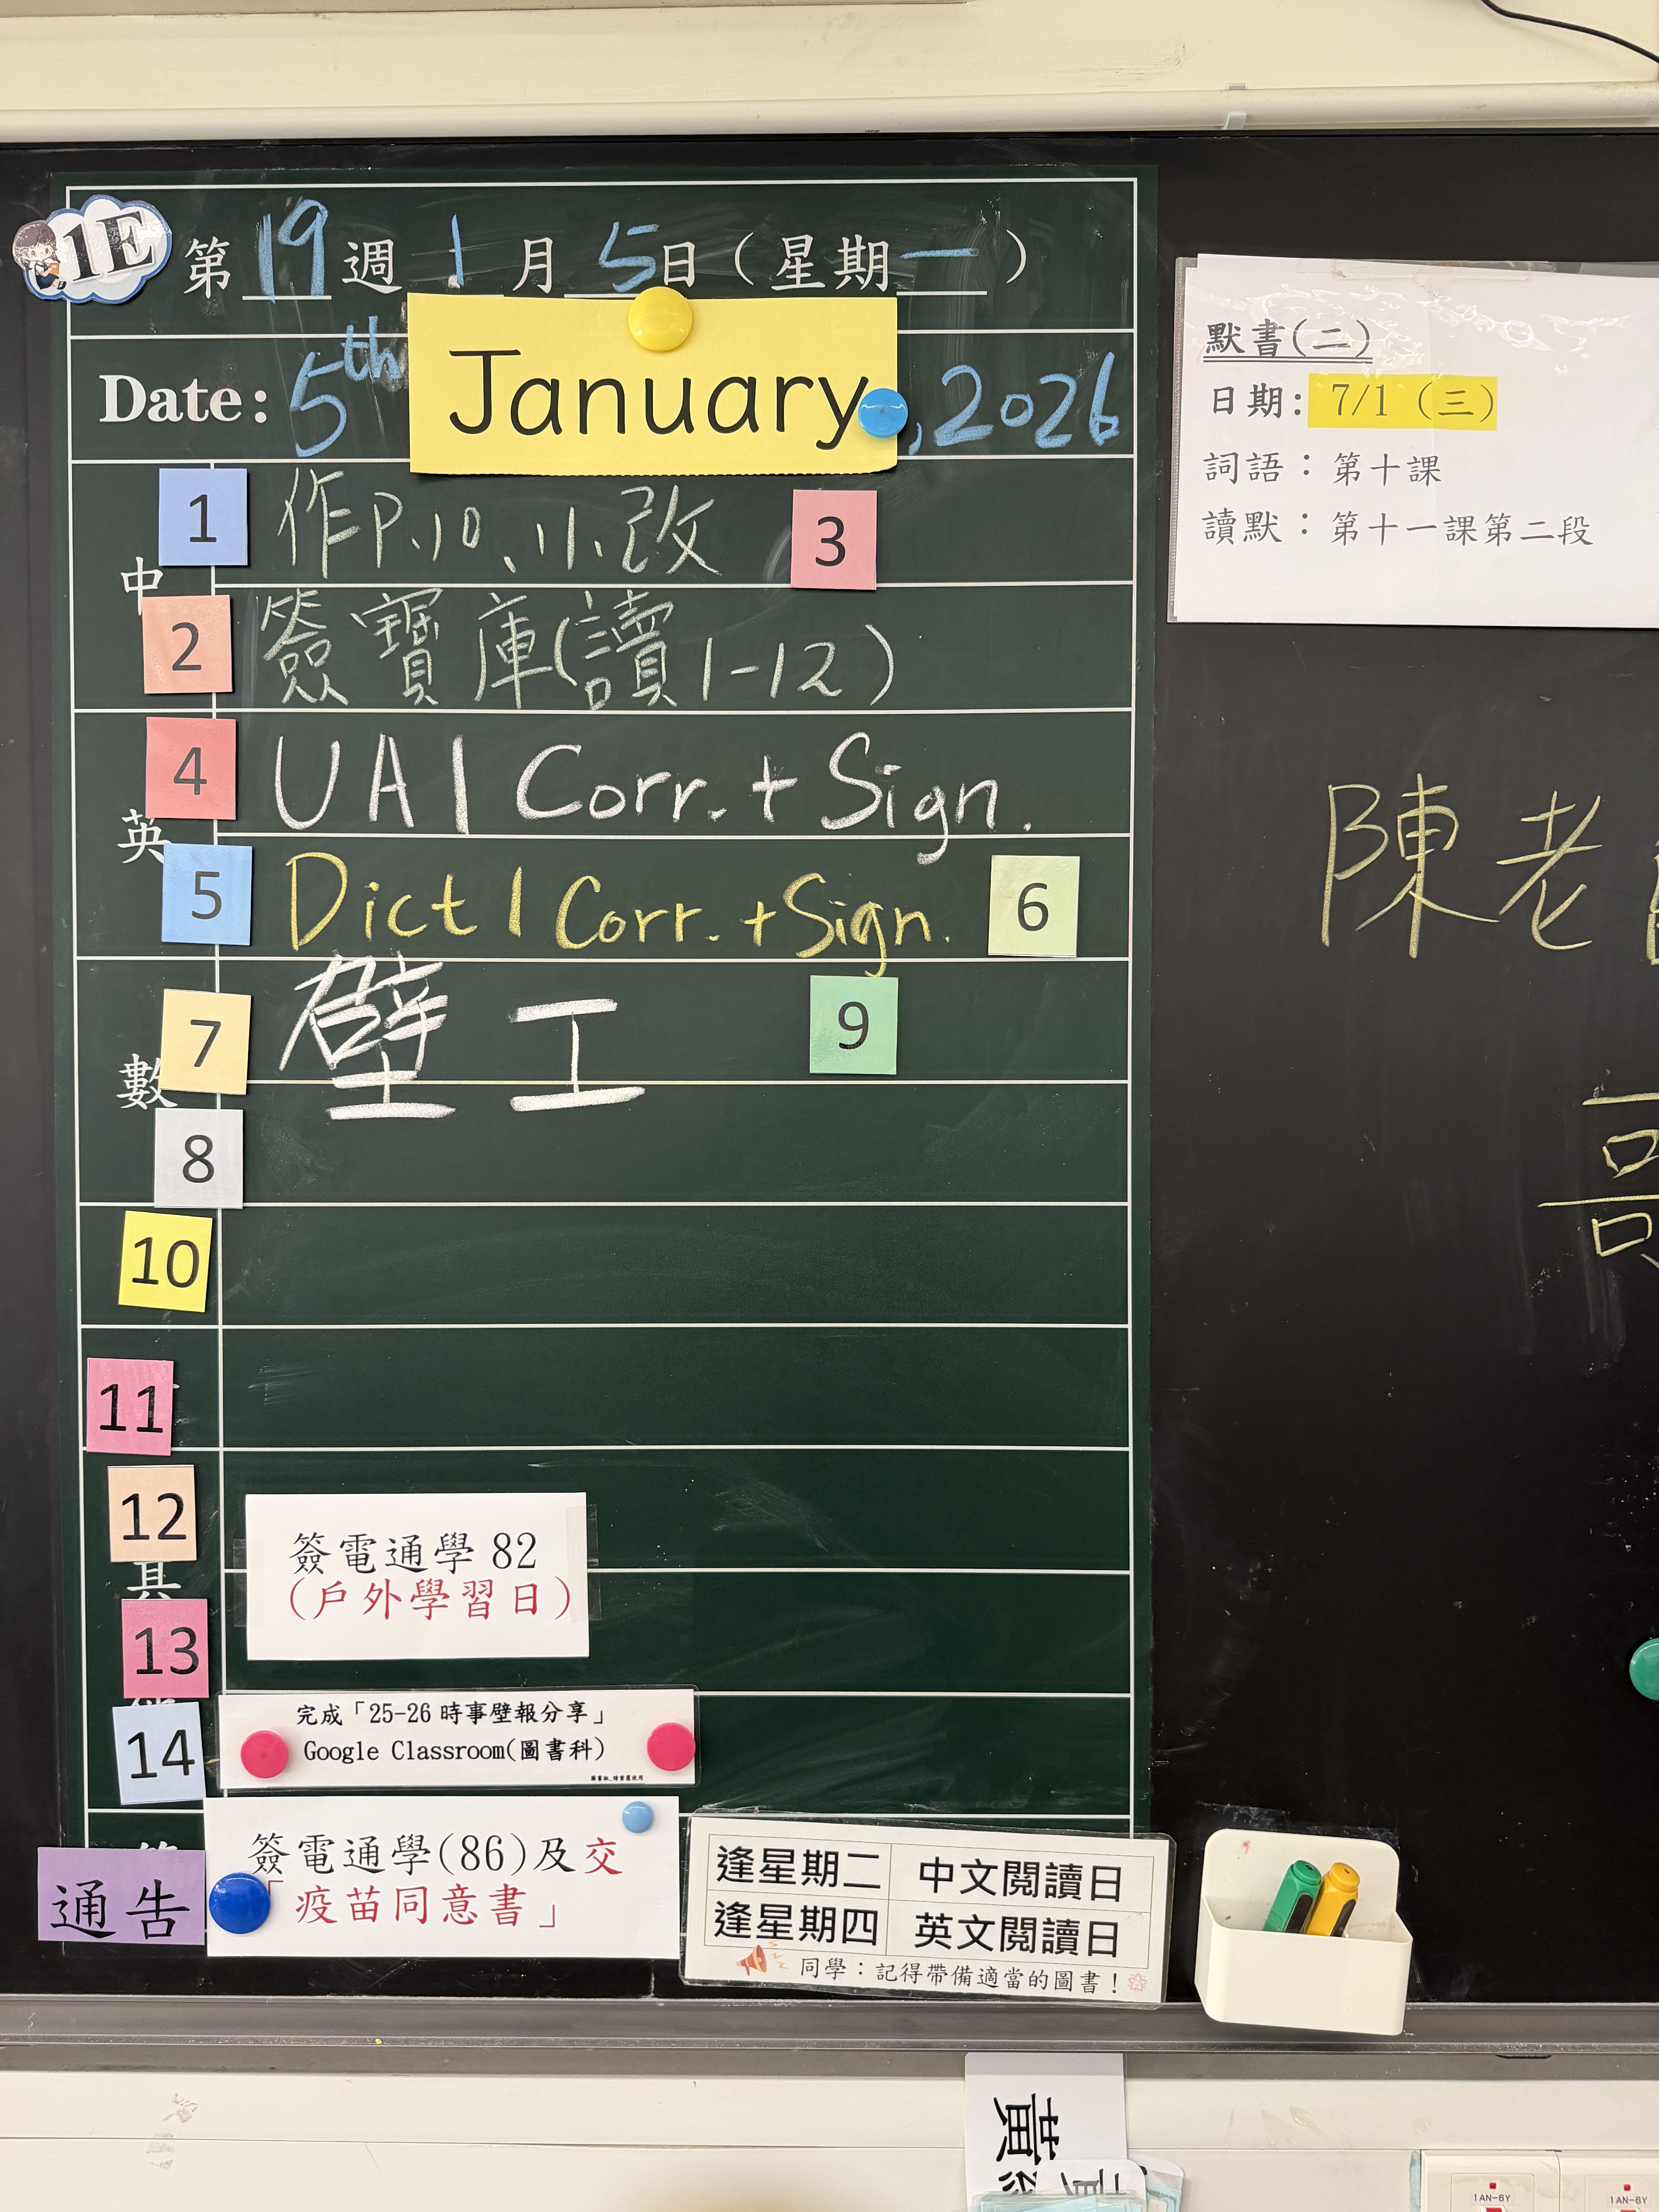 1E
第19週1月5日(星期一)
Date: 5th January, 2026
中
1 作P.10、11、改 3
2 簽寶庫(讀1-12)
英
4 UA1 Corr. + Sign.
5 Dict 1 Corr. + Sign. 6
數
7 壁工 9
8
10
11
12
簽電通學 82
(戶外學習日)
13
14
完成「25-26 時事壁報分享」
Google Classroom(圖書科)
通告
簽電通學(86)及交
「疫苗同意書」
逢星期二 中文閱讀日
逢星期四 英文閱讀日
同學：記得帶備適當的圖書！
默書(二)
日期: 7/1 (三)
詞語：第十課
讀默：第十一課第二段
陳老
黃
1AN-6Y
1AN-6Y